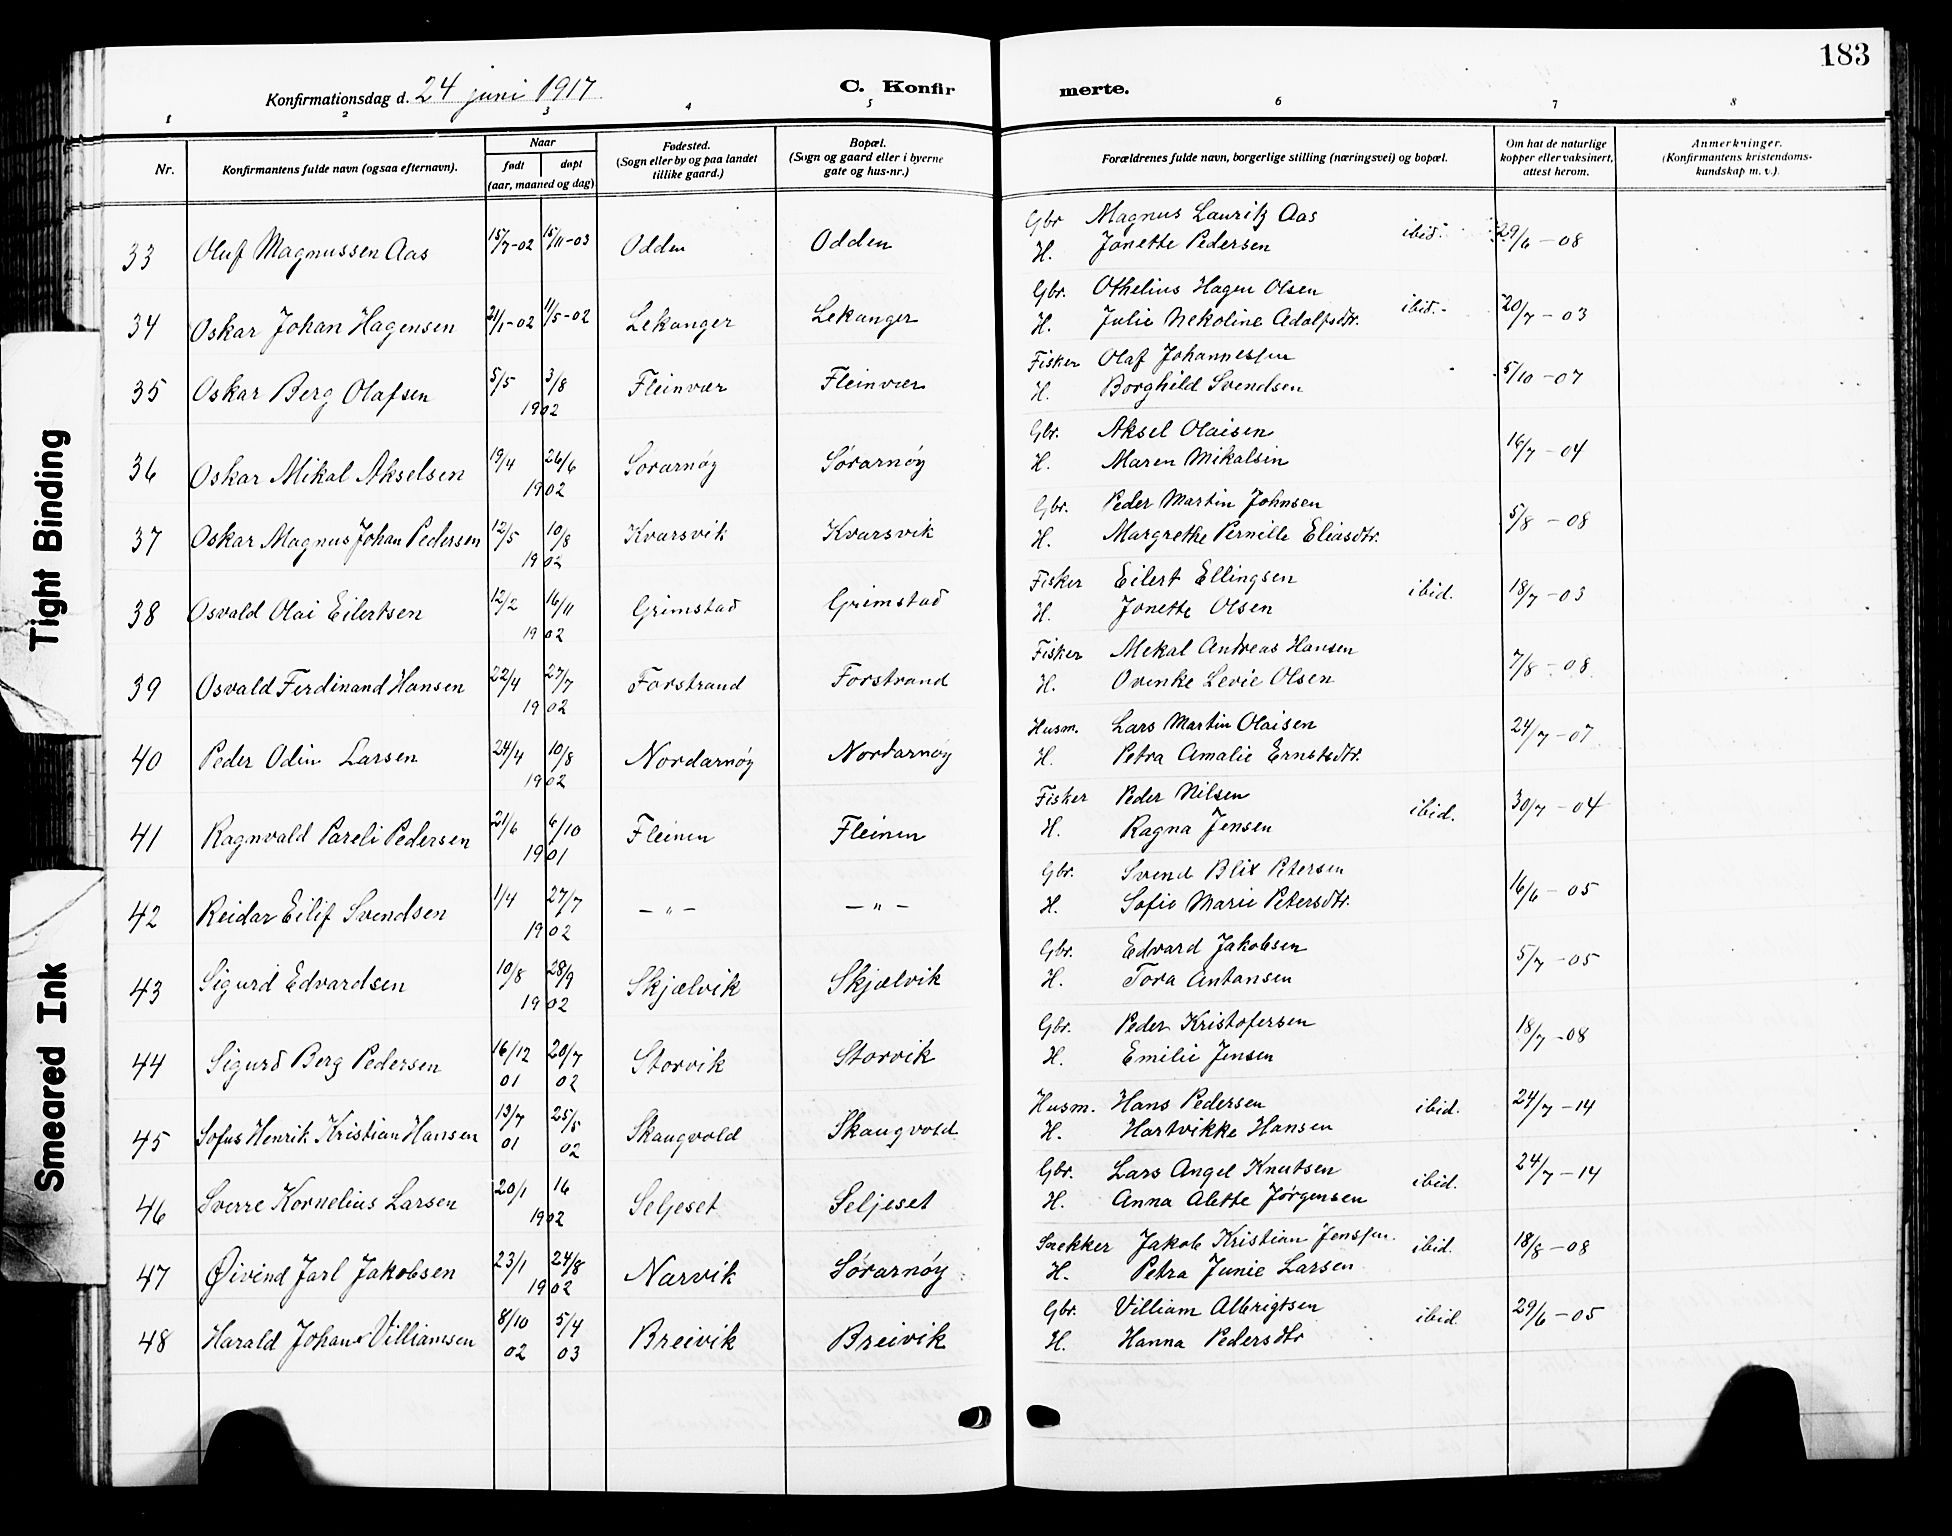 183
Konfirmationsdag d. 24 juni 1917.
C. Konfirmerte.
1 2 3 4 5 6 7 8
Nr.
Konfirmantens fulde navn (ogsaa efternavn).
Naar
født døpt
(aar, maaned og dag)
Fødested.
(Sogn eller by og paa landet
tillike gaard.)
Bopæl.
(Sogn og gaard eller i byerne
gate og hus-nr.)
Forældrenes fulde navn, borgerlige stilling (næringsvei) og bopæl.
Om hat de naturlige
kopper eller vaksinert,
attest herom.
Anmerkninger.
(Konfirmantens kristendoms-
kundskap m. v.).
33 Oluf Magnussen Aas 15/7-02 15/11-03 Odden Odden Gbr Magnus Lauritz Aas ibid. 29/6-08
H. Jonette Pedersen
34 Oskar Johan Hagensen 21/1-02 11/5-02 Lekanger Lekanger Gbr. Othelius Hagen Olsen ibid. 20/7-03
H. Julie Nekoline Adolfsdtr.
35 Oskar Berg Olafsen 5/5 3/8 1902 Fleinvær Fleinvær Fisker Olaf Johannessen 5/10-07
H. Borghild Svendsen
36 Oskar Mikal Akselsen 19/4 26/6 1902 Sørarnøy Sørarnøy Gbr. Aksel Olaisen 16/7-04
H. Maren Mikalsen
37 Oskar Magnus Johan Pedersen 12/5 10/8 1902 Kvarsvik Kvarsvik Gbr. Peder Martin Johnsen 5/8-08
H. Margrethe Pernille Eliasdtr.
38 Osvald Olai Eilertsen 12/2 16/11 1902 Grimstad Grimstad Fisker Eilert Ellingsen ibid. 18/7-03
H. Jonette Olsen
39 Osvald Ferdinand Hansen 22/4 27/7 1902 Forstrand Forstrand Fisker Mekal Andreas Hansen 7/8-08
H. Ovinke Levie Olsen
40 Peder Odin Larsen 24/4 10/8 1902 Nordarnøy Nordarnøy Husm. Lars Martin Olaisen 24/7-07
H. Petra Amalie Ernstsdtr.
41 Ragnvald Pareli Pedersen 21/6 6/10 1901 Fleinen Fleinen Fisker Peder Nilsen ibid. 30/7-04
H. Ragna Jensen
42 Reidar Eilif Svendsen 1/4 27/7 1902 -"- -"- Gbr. Svend Blix Petersen 16/6-05
H. Sofie Marie Petersdtr.
43 Sigurd Edvardsen 10/8 28/9 1902 Skjælvik Skjælvik Gbr. Edvard Jakobsen 5/7-05
H. Tora Antonsen
44 Sigurd Berg Pedersen 16/12 01 20/7 02 Storvik Storvik Gbr. Peder Kristofersen 18/7-08
H. Emilie Jensen
45 Sofus Henrik Kristian Hansen 13/7 01 25/5 02 Skaugvold Skaugvold Husm. Hans Pedersen ibid. 24/7-14
H. Hartvikke Hansen
46 Sverre Kornelius Larsen 20/1 16 1902 Seljeset Seljeset Gbr. Lars Angel Knutsen ibid. 24/7-14
H. Anna Alette Jørgensen
47 Øivind Jarl Jakobsen 23/1 24/8 1902 Narvik Sørarnøy Snekker Jakob Kristian Jenssen ibid. 18/8-08
H. Petra Junie Larsen
48 Harald Johan Villiamsen 8/10 02 5/4 03 Breivik Breivik Gbr. Villiam Albrigtsen ibid. 29/6-05
H. Hanna Pedersdtr
Tight Binding
Smeared Ink